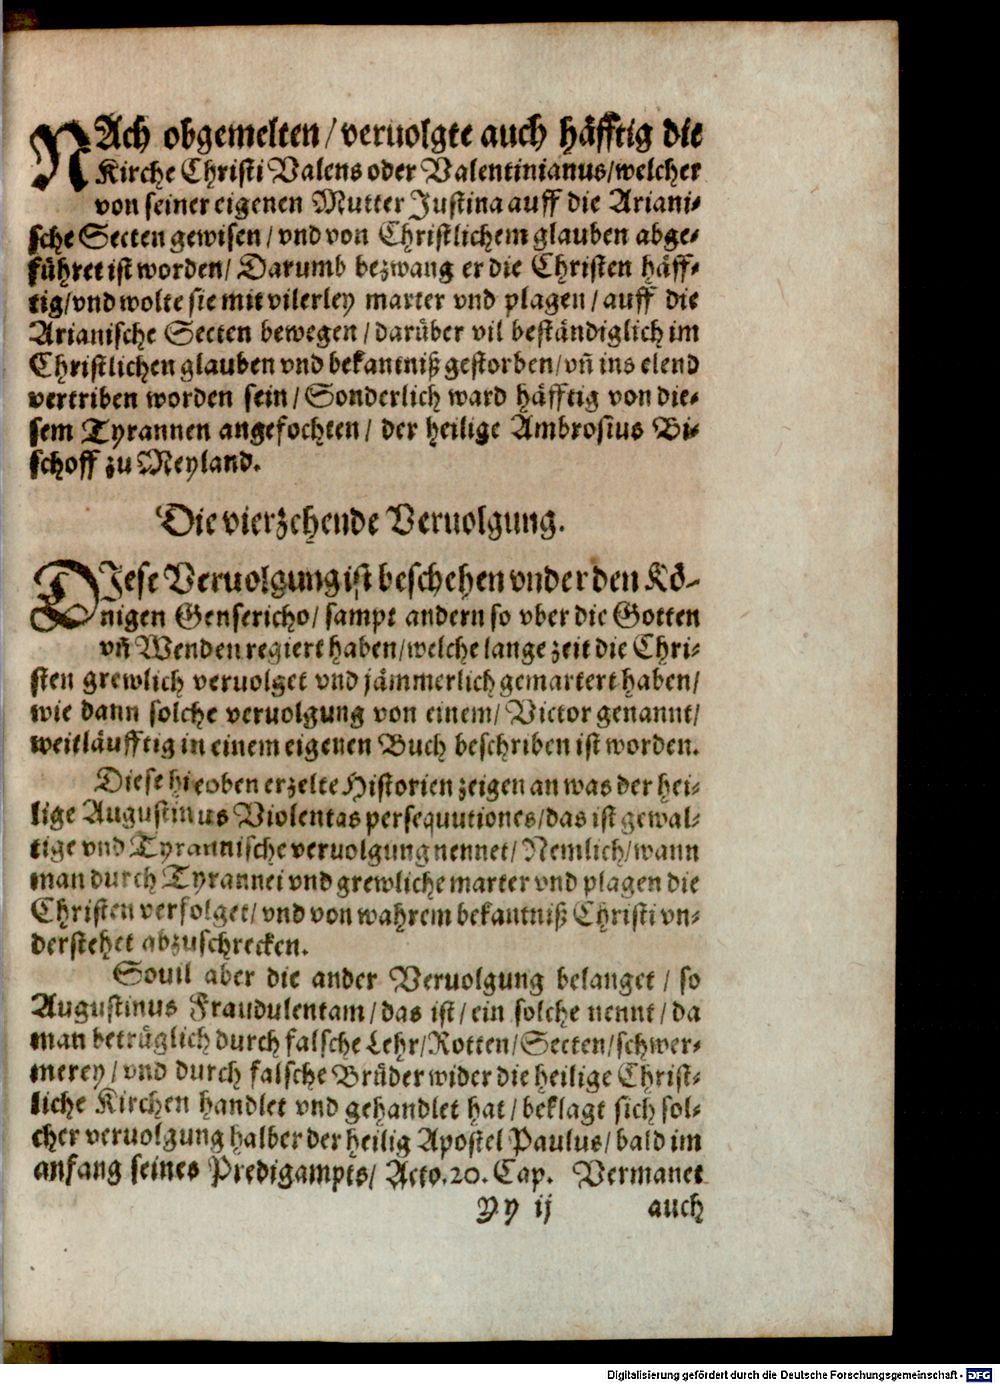 NAch obgemelten / veruolgte auch häfftig die
Kirche Christi Valens oder Valentinianus/welcher
von seiner eigenen Mutter Justina auff die Ariani-
sche Secten gewisen / vnd von Christlichem glauben abge-
führet ist worden/ Darumb bezwang er die Christen häff-
tig/vnd wolte sie mit vilerley marter vnd plagen / auff die
Arianische Secten bewegen / darüber vil beständiglich im
Christlichen glauben vnd bekantniß gestorben/vñ ins elend
vertriben worden sein / Sonderlich ward häfftig von die-
sem Tyrannen angefochten / der heilige Ambrosius Bi-
schoff zu Meyland.
Die vierzehende Veruolgung.
DIese Veruolgung ist beschehen vnder den Kö-
nigen Gensericho/ sampt andern so vber die Gotten
vñ Wenden regiert haben/welche lange zeit die Chri-
sten grewlich veruolget vnd jämmerlich gemartert haben/
wie dann solche veruolgung von einem/ Victor genannt/
weitläufftig in einem eigenen Buch beschriben ist worden.
Diese hieoben erzelte Historien zeigen an was der hei-
lige Augustinus Violentas persequutiones/das ist gewal-
tige vnd Tyrannische veruolgung nennet/ Nemlich/wann
man durch Tyrannei vnd grewliche marter vnd plagen die
Christen verfolget/ vnd von wahrem bekantniß Christi vn-
derstehet abzuschrecken.
Souil aber die ander Veruolgung belanget / so
Augustinus Fraudulentam / das ist / ein solche nennt / da
man betrüglich durch falsche Lehr/Rotten/Secten/schwer-
merey / vnd durch falsche Brüder wider die heilige Christ-
liche Kirchen handlet vnd gehandlet hat / beklagt sich sol-
cher veruolgung halber der heilig Apostel Paulus/ bald im
anfang seines Predigampts/ Acto.20. Cap. Vermanet
Yy ij auch
Digitalisierung gefördert durch die Deutsche Forschungsgemeinschaft - DFG